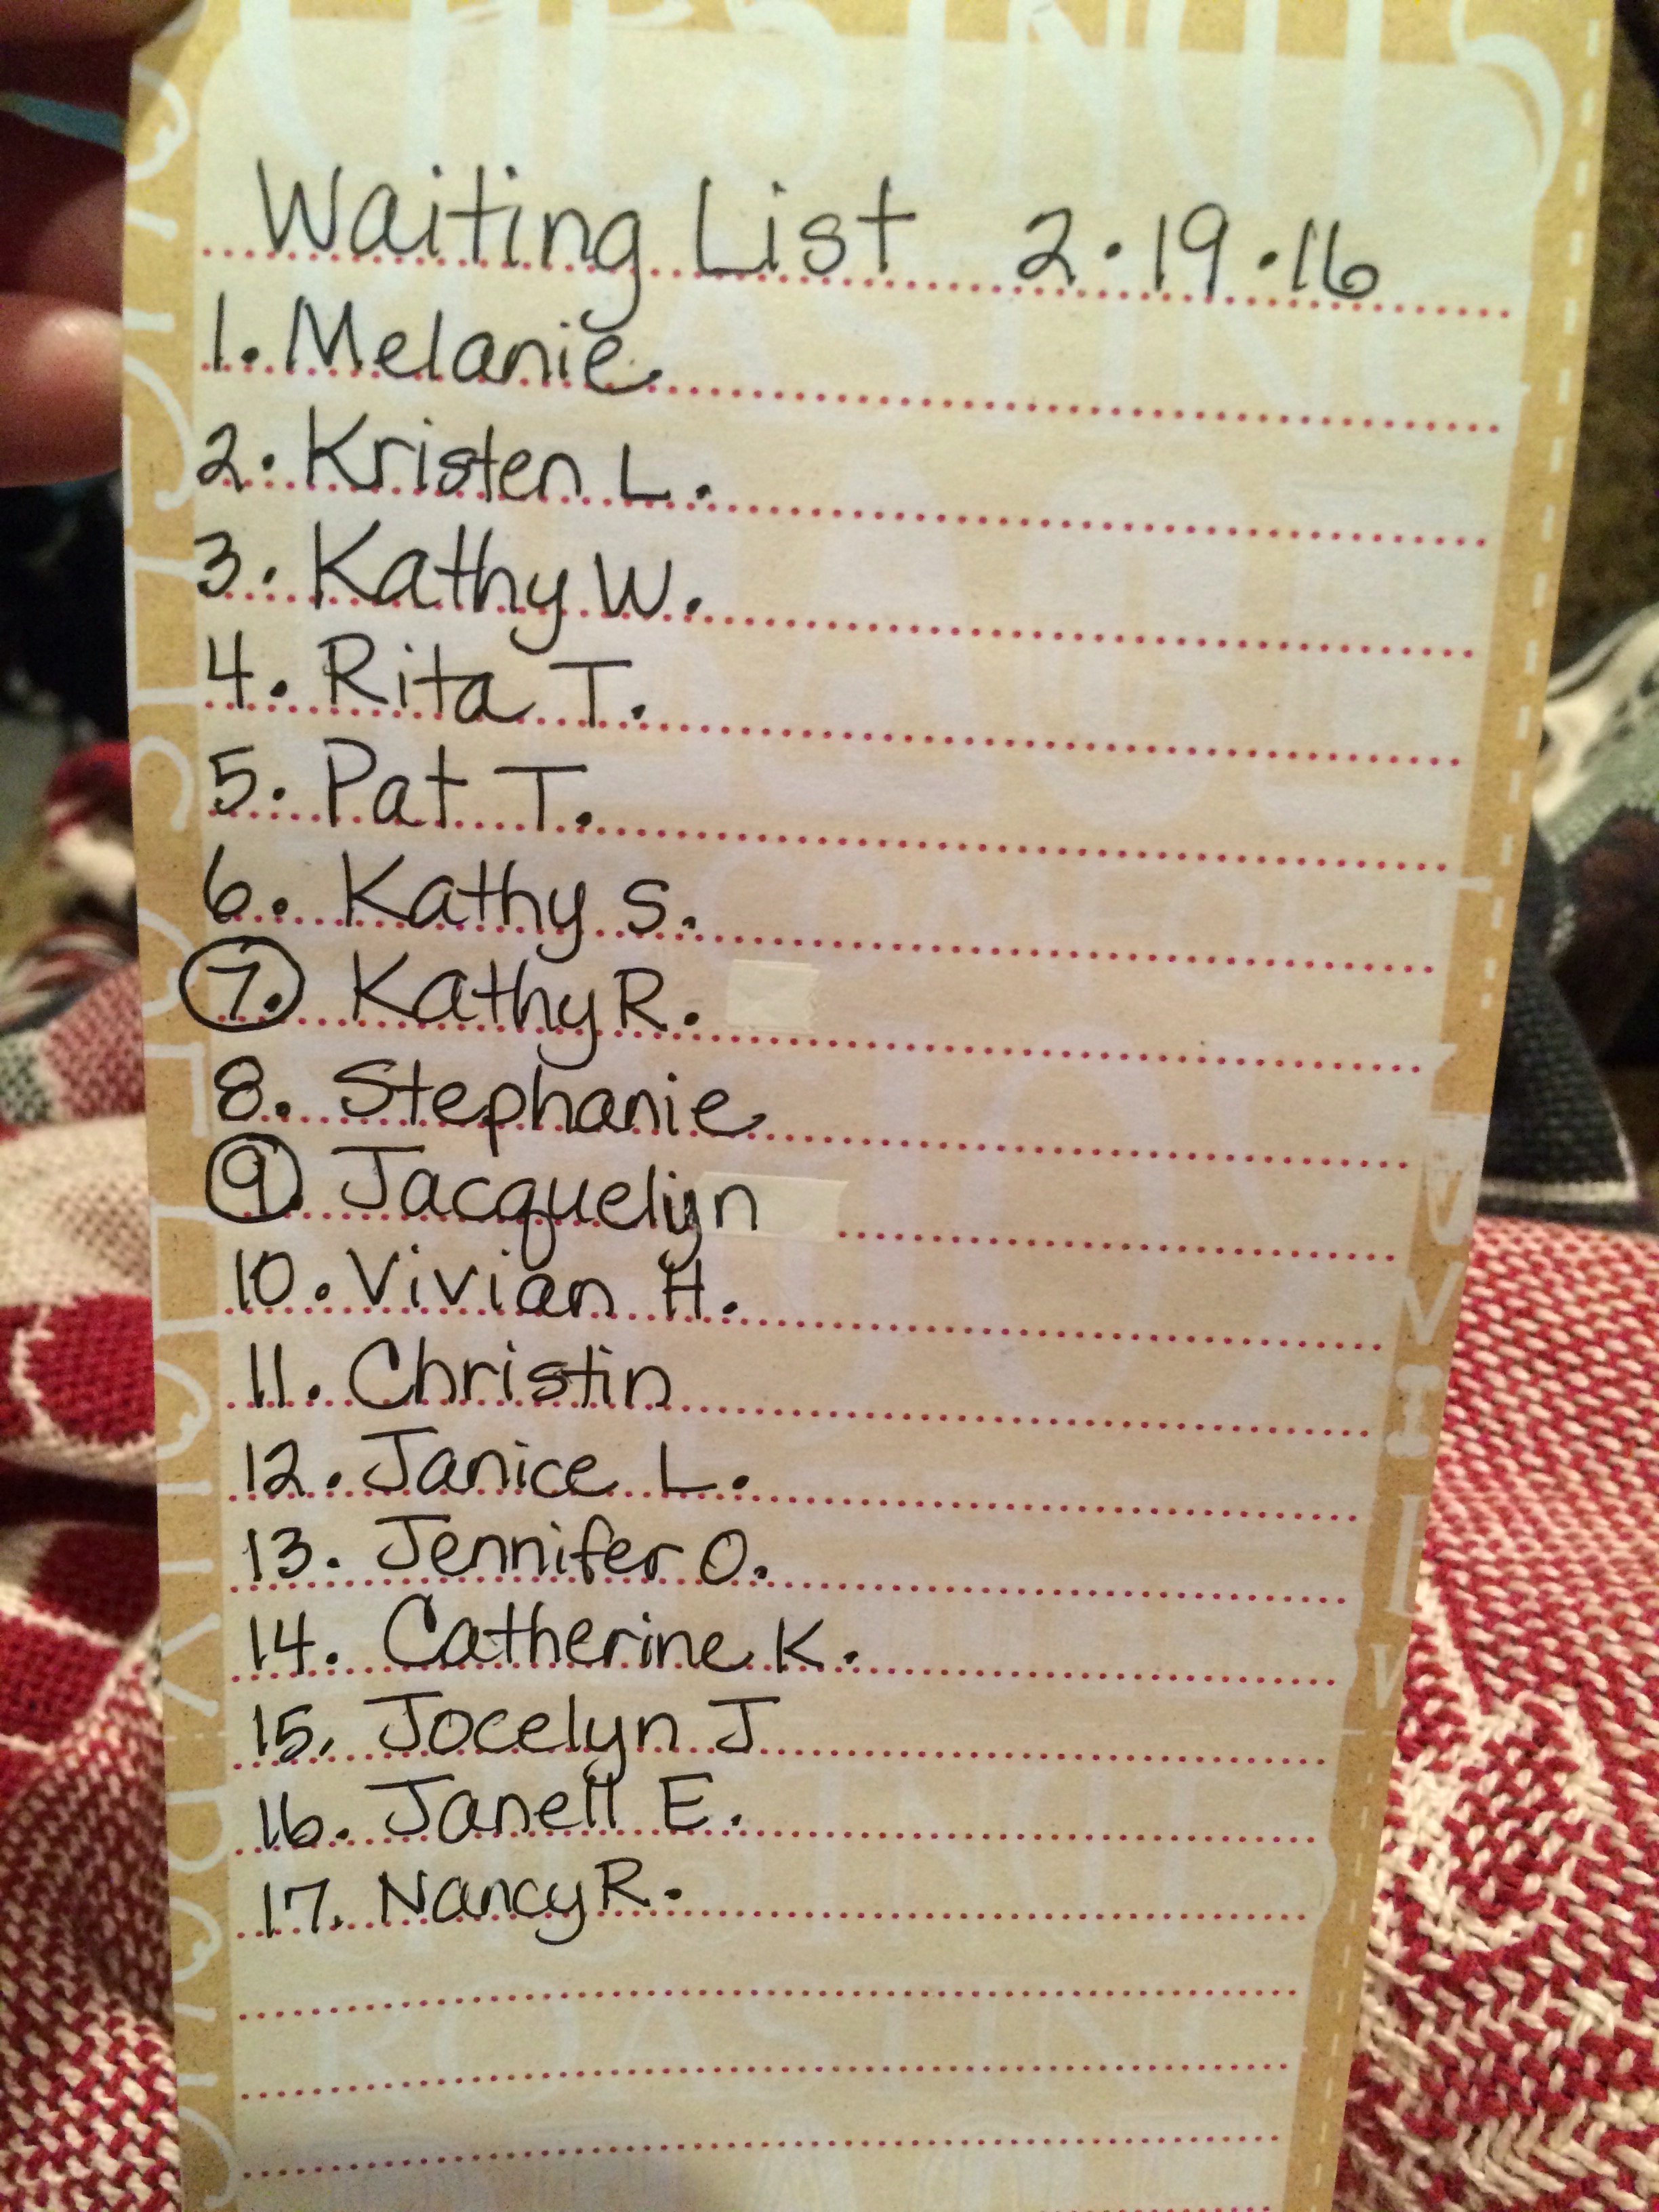 Waiting List 2.19.16
1. Melanie
2. Kristen L.
3. Kathy W.
4. Rita T.
5. Pat T.
6. Kathy S.
7. Kathy R.
8. Stephanie
9. Jacquelyn
10. Vivian H.
11. Christin
12. Janice L.
13. Jennifer O.
14. Catherine K.
15. Jocelyn J
16. Janell E.
17. Nancy R.